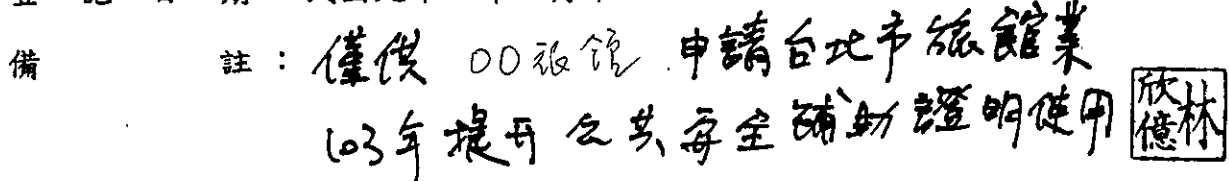 備註：僅供 OO旅館 申請台北市旅館業
103年提升公共安全補助證明使用
林欣億